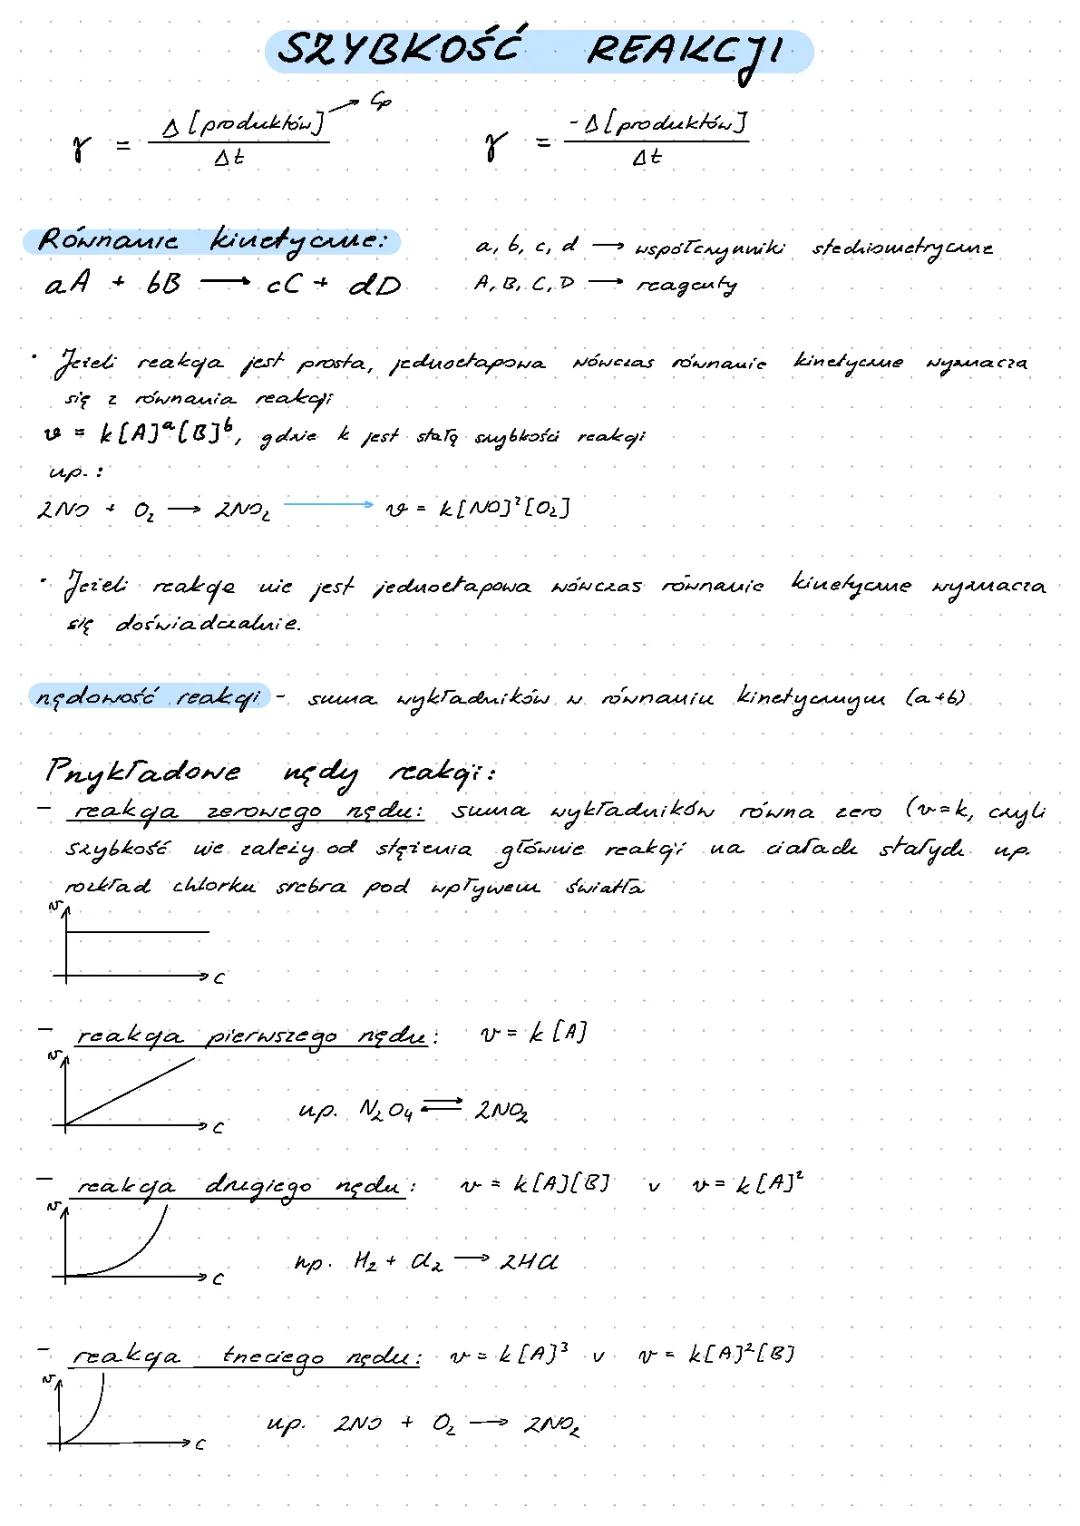 SZYBKOŚĆ REAKCJI
γ = Δ[produktów] / Δt → Cp
γ = -Δ[produktów] / Δt
Równanie kinetyczne:
aA + bB → cC + dD
a, b, c, d → współczynniki stechiometryczne
A, B, C, D → reagenty
· Jeżeli reakcja jest prosta, jednoetapowa wówczas równanie kinetyczne wyznacza
się z równania reakcji
v = k[A]ᵃ[B]ᵇ, gdzie k jest stałą szybkości reakcji
np.:
2NO + O₂ → 2NO₂ → v = k[NO]²[O₂]
· Jeżeli reakcja nie jest jednoetapowa wówczas równanie kinetyczne wyznacza
się doświadczalnie.
rzędowość reakcji - suma wykładników w równaniu kinetycznym (a+b)
Przykładowe rzędy reakcji:
- reakcja zerowego rzędu: suma wykładników równa zero (v=k, czyli
szybkość nie zależy od stężenia głównie reakcji na ciałach stałych np.
rozkład chlorku srebra pod wpływem światła
v
c
- reakcja pierwszego rzędu: v = k[A]
v
np. N₂O₄ ⇌ 2NO₂
c
- reakcja drugiego rzędu: v = k[A][B] v v = k[A]²
v
np. H₂ + Cl₂ → 2HCl
c
- reakcja trzeciego rzędu: v = k[A]³ v v = k[A]²[B]
v
np. 2NO + O₂ → 2NO₂
c